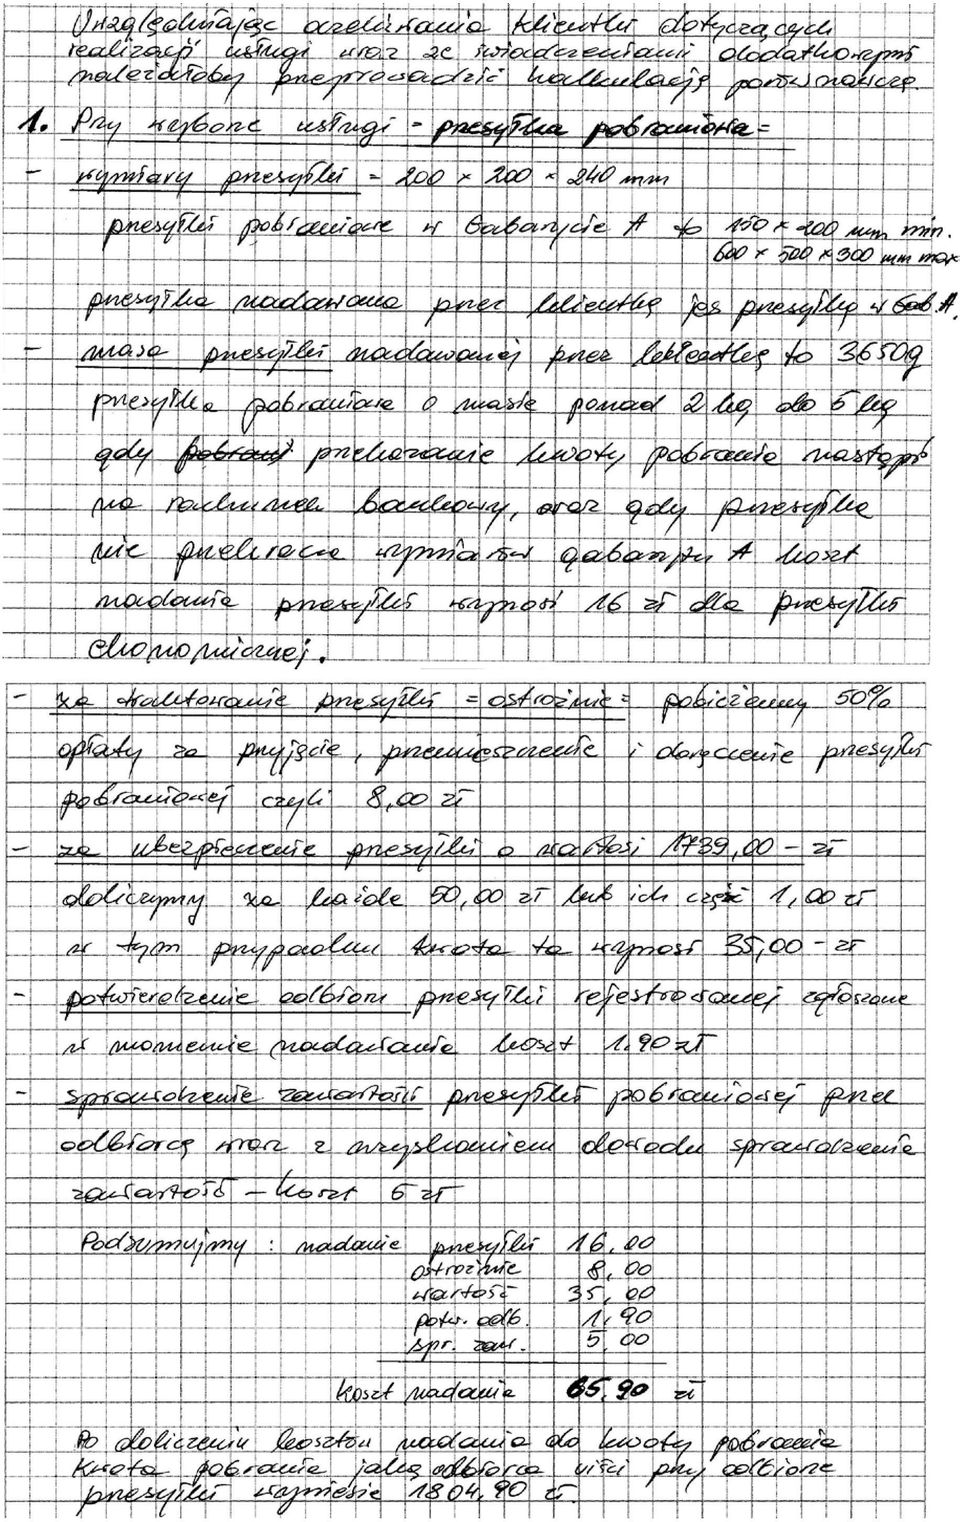 Uwzględniając oczekiwania klientki dotyczących
realizacji usługi wraz ze świadczeniami dodatkowymi
należałoby przeprowadzić kalkulację porównawczą.
1. Przy wyborze usługi - przesyłka pobraniowa =
- wymiary przesyłki = 200 × 200 × 240 mm
przesyłki pobraniowe w Gabarycie A to 150 × 200 mm min.
600 × 500 × 300 mm max
przesyłka nadawana przez klientkę jes przesyłką w Gab. A.
- masa przesyłki nadawanej przez klientkę to 3650g
przesyłka pobraniowa o masie ponad 2 kg do 5 kg
gdy przekazanie kwoty pobrania nastąpi
na rachunek bankowy, oraz gdy przesyłka
nie przekracza wymiarów gabarytu A koszt
nadania przesyłki wynosi 16 zł dla przesyłki
ekonomicznej.
- za traktowanie przesyłki = ostrożnie = pobierzemy 50%
opłaty za przyjęcie, przemieszczenie i doręczenie przesyłki
pobraniowej czyli 8,00 zł
- za ubezpieczenie przesyłki o wartosi 1739,00 - zł
doliczymy za każde 50,00 zł lub ich część 1,00 zł
w tym przypadku kwota ta wynosi 35,00 - zł
- potwierdzenie odbioru przesyłki rejestrowanej zgłoszone
w momencie nadawania koszt 1.90 zł
- sprawdzenie zawartości przesyłki pobraniowej przez
odbiorcę wraz z uzyskaniem dowodu sprawdzenia
zawartości - koszt 5 zł
Podsumujmy : nadanie przesyłki 16,00
ostrożnie 8,00
wartość 35,00
potw. odb. 1,90
spr. zaw. 5,00
koszt nadania 65,90 zł
Po doliczeniu kosztów nadania do kwoty pobrania
kwota pobrania jaką odbiorca uiści przy odbiorze
przesyłki wyniesie 1804,90 zł.